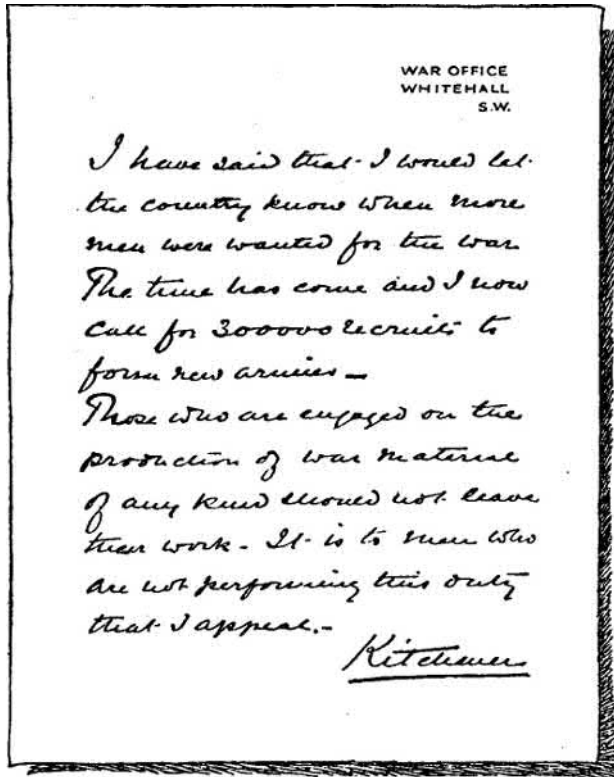 WAR OFFICE
WHITEHALL
S.W.
I have said that I would let
the country know when more
men were wanted for the war
The time has come and I now
call for 300000 recruits to
form new armies —
Those who are engaged on the
production of war material
of any kind should not leave
their work - It is to men who
are not performing this duty
that I appeal. -
Kitchener